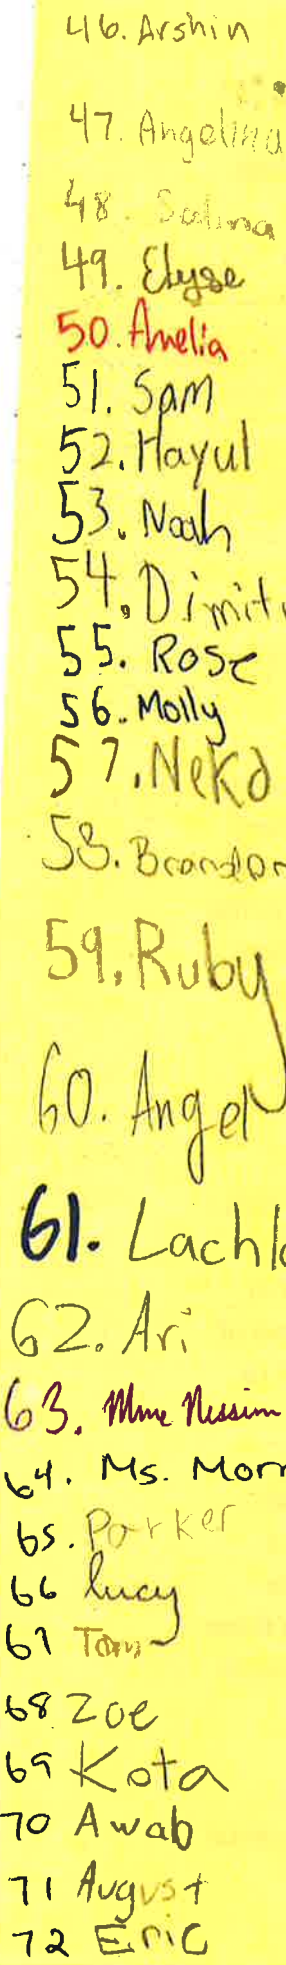 46. Arshin
47. Angelina
48. Salina
49. Elyse
50. Amelia
51. Sam
52. Hayul
53. Noah
54. Dimit
55. Rose
56. Molly
57. Neka
58. Brandon
59. Ruby
60. Angel
61. Lachla
62. Ari
63. Mme Nissim
64. Ms. Morr
65. Parker
66 lucy
67 Tom
68 Zoe
69 Kota
70 Awab
71 August
72 Eric